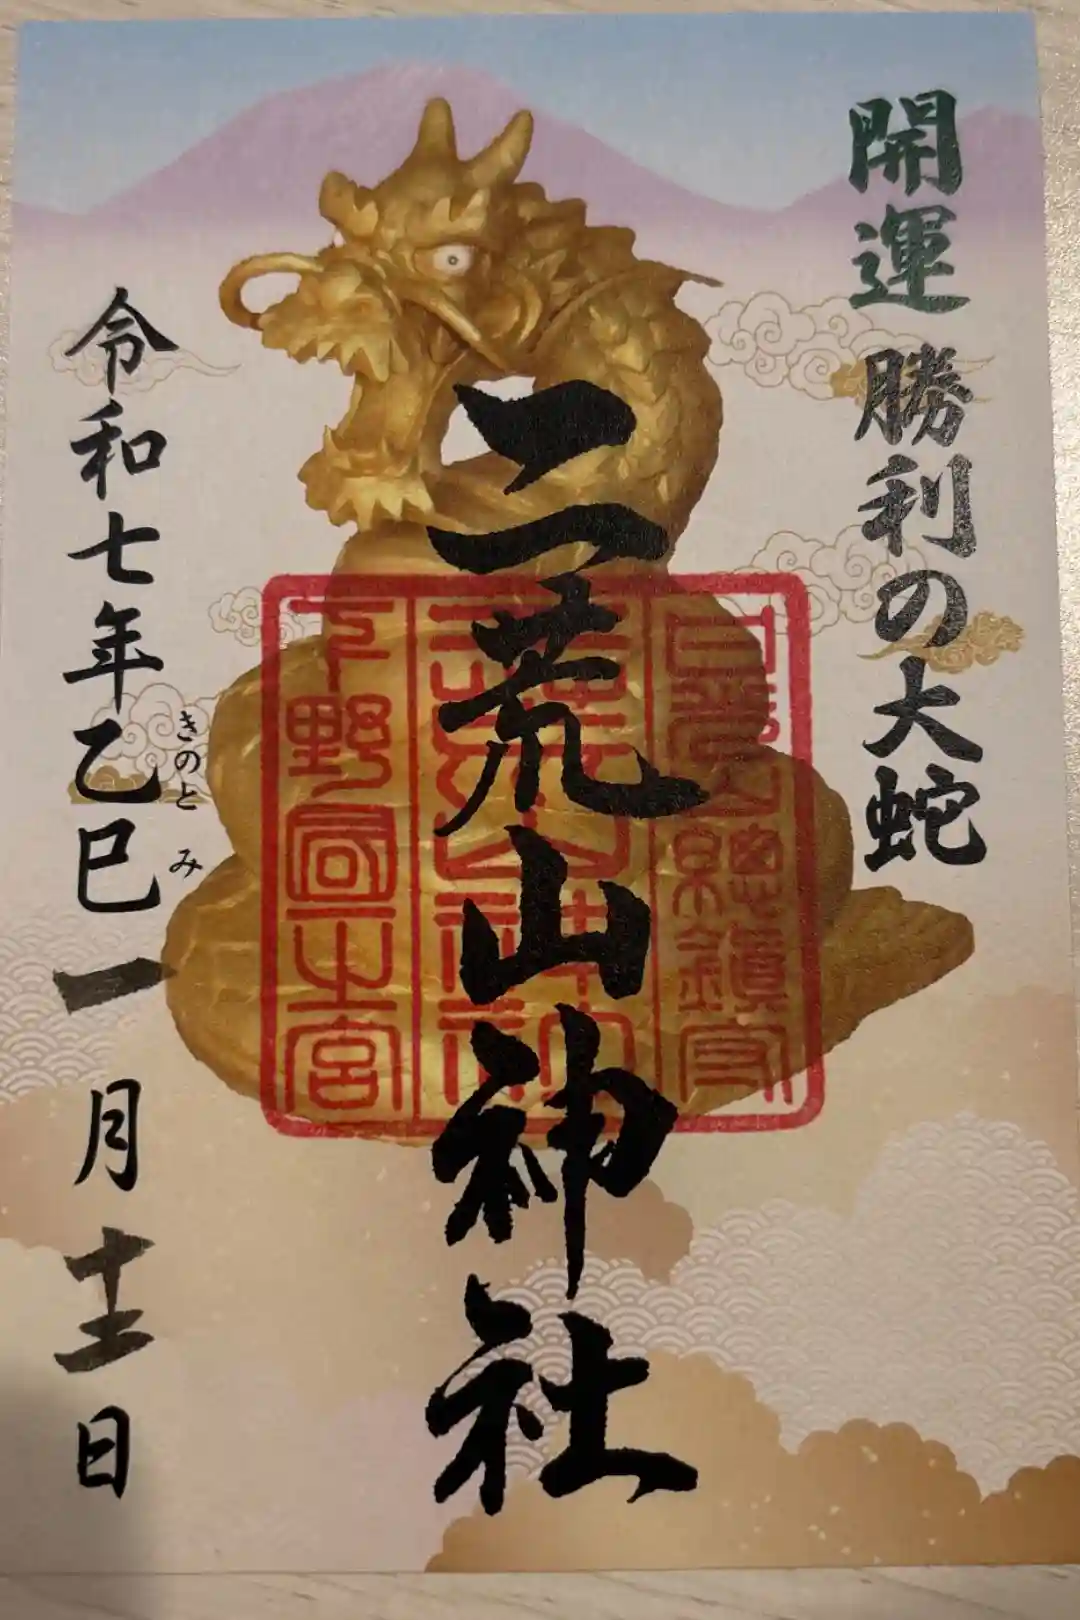 開運 勝利の大蛇
二荒山神社
日光山總鎮守
下野國一之宮
令和七年乙巳一月十二日
きのと み